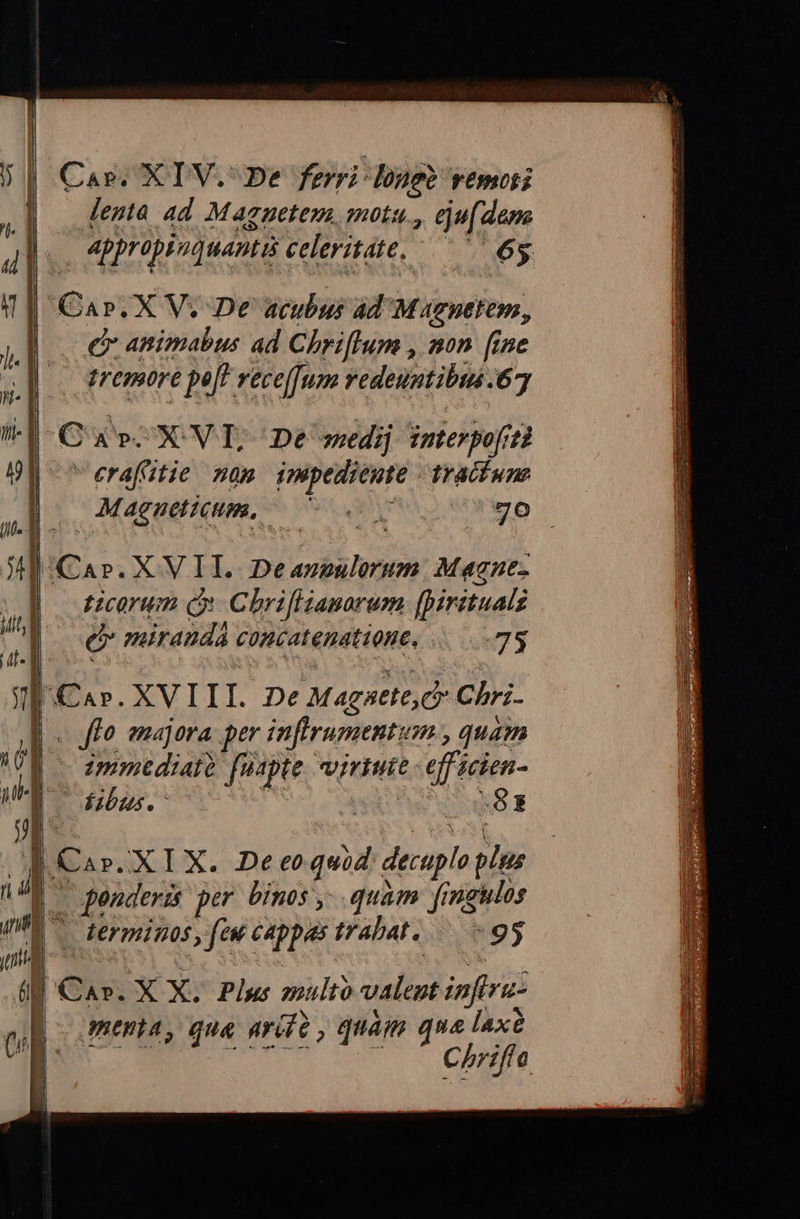 Cap. XIV. De ferri longè remoti
lenta ad Magnetem motu, ejuſdem
appropinquantis celeritate. 65
Cap. XV. De acubus ad Magnetem,
& animabus ad Chriſtum, non ſine
tremore poſt receſſum redeuntibus. 67
Cap. XVI. De medij interpoſiti
craſſitie non impediente tractum
Magneticum. 70
Cap. XVII. De annulorum Magne-
ticorum & Chriſtianorum ſpirituali
& mirandâ concatenatione. 75
Cap. XVIII. De Magnete, & Chri-
ſto majora per inſtrumentum, quàm
immediatè ſuapte virtute efficien-
tibus. 81
Cap. XIX. De eo quòd decuplo plus
ponderis per binos, quàm ſingulos
terminos, ſeu cappas trahat. 95
Cap. XX. Plus multò valent inſtru-
menta, quæ arctè, quàm quæ laxè
Chriſto